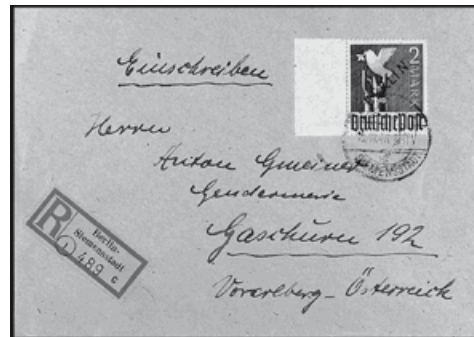 Einschreiben
2
MARK
BERLIN
Deutsche Post
Herrn
Anton Gmeiner
Gendarmerie
Gaschurn 192
Vorarlberg – Österreich
R
Berlin-
Siemensstadt
489 c
SIEMENSSTADT